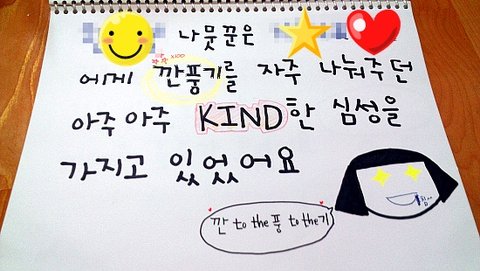 나뭇꾼은
에게 깐풍기를 자주 나눠주던
아주 아주 KIND한 심성을
가지고 있었어요
깐 to the 풍 to the 기